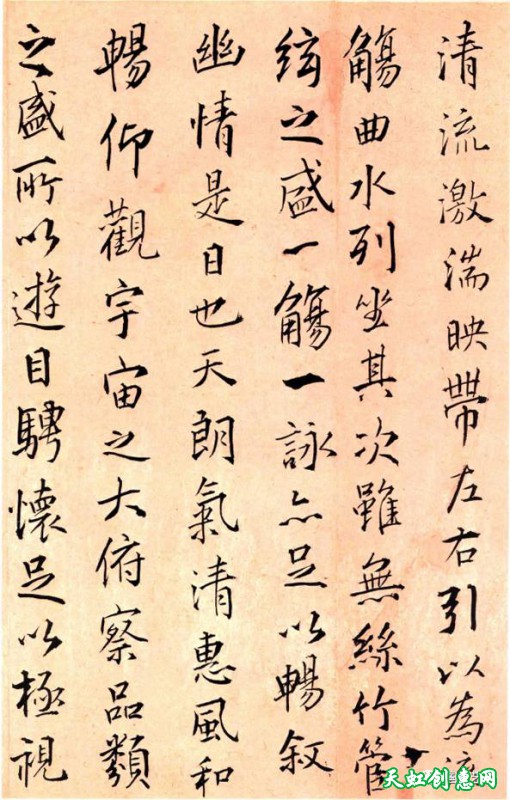 清流激湍映帶左右引以為流
觴曲水列坐其次雖無絲竹管
絃之盛一觴一詠亦足以暢敘
幽情是日也天朗氣清惠風和
暢仰觀宇宙之大俯察品類
之盛所以遊目騁懷足以極視
天虹创惠网